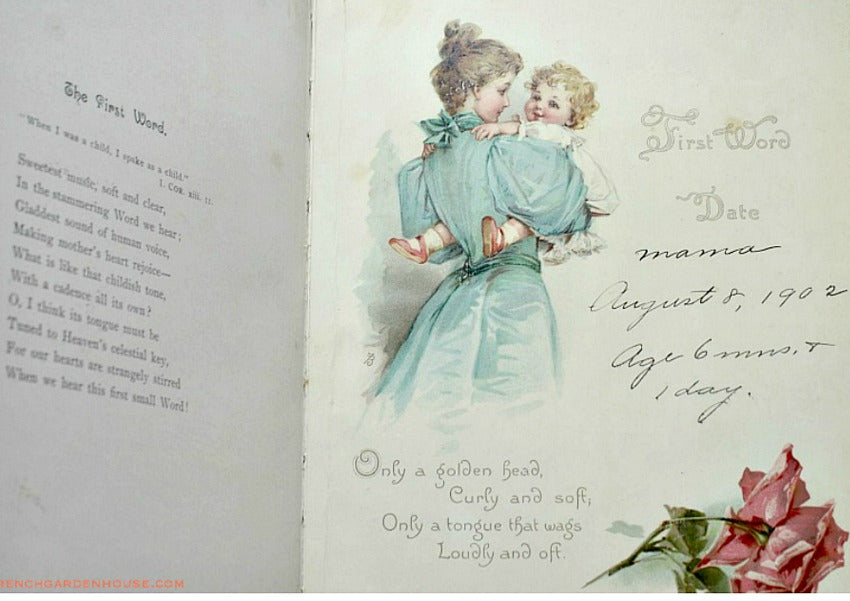 The First Word.
"When I was a child, I spake as a child."
I. COR. xiii. 11.
Sweetest music, soft and clear,
In the stammering Word we hear;
Gladdest sound of human voice,
Making mother's heart rejoice—
What is like that childish tone,
With a cadence all its own?
O, I think its tongue must be
Tuned to Heaven's celestial key,
For our hearts are strangely stirred
When we hear this first small Word!
First Word
Date
mama
August 8, 1902
Age 6 mns. +
1 day.
Only a golden head,
Curly and soft;
Only a tongue that wags
Loudly and oft.
RENCHGARDENHOUSE.COM